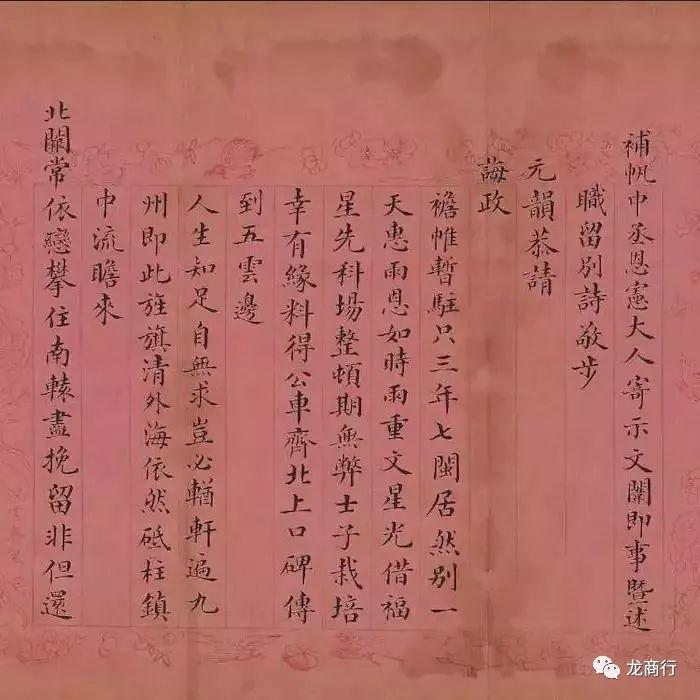 補帆中丞恩憲大人寄示文闈即事暨述
職留別詩敬步
元韻恭請
誨政
襜帷暫駐只三年七閩居然別一
天惠雨恩如時雨重文星光借福
星先科場整頓期無弊士子栽培
幸有緣料得公車齊北上口碑傳
到五雲邊
人生知足自無求豈必輶軒遍九
州即此旌旗清外海依然砥柱鎮
中流瞻來
北闕常依戀攀住南轅盡挽留非但還
龙商行